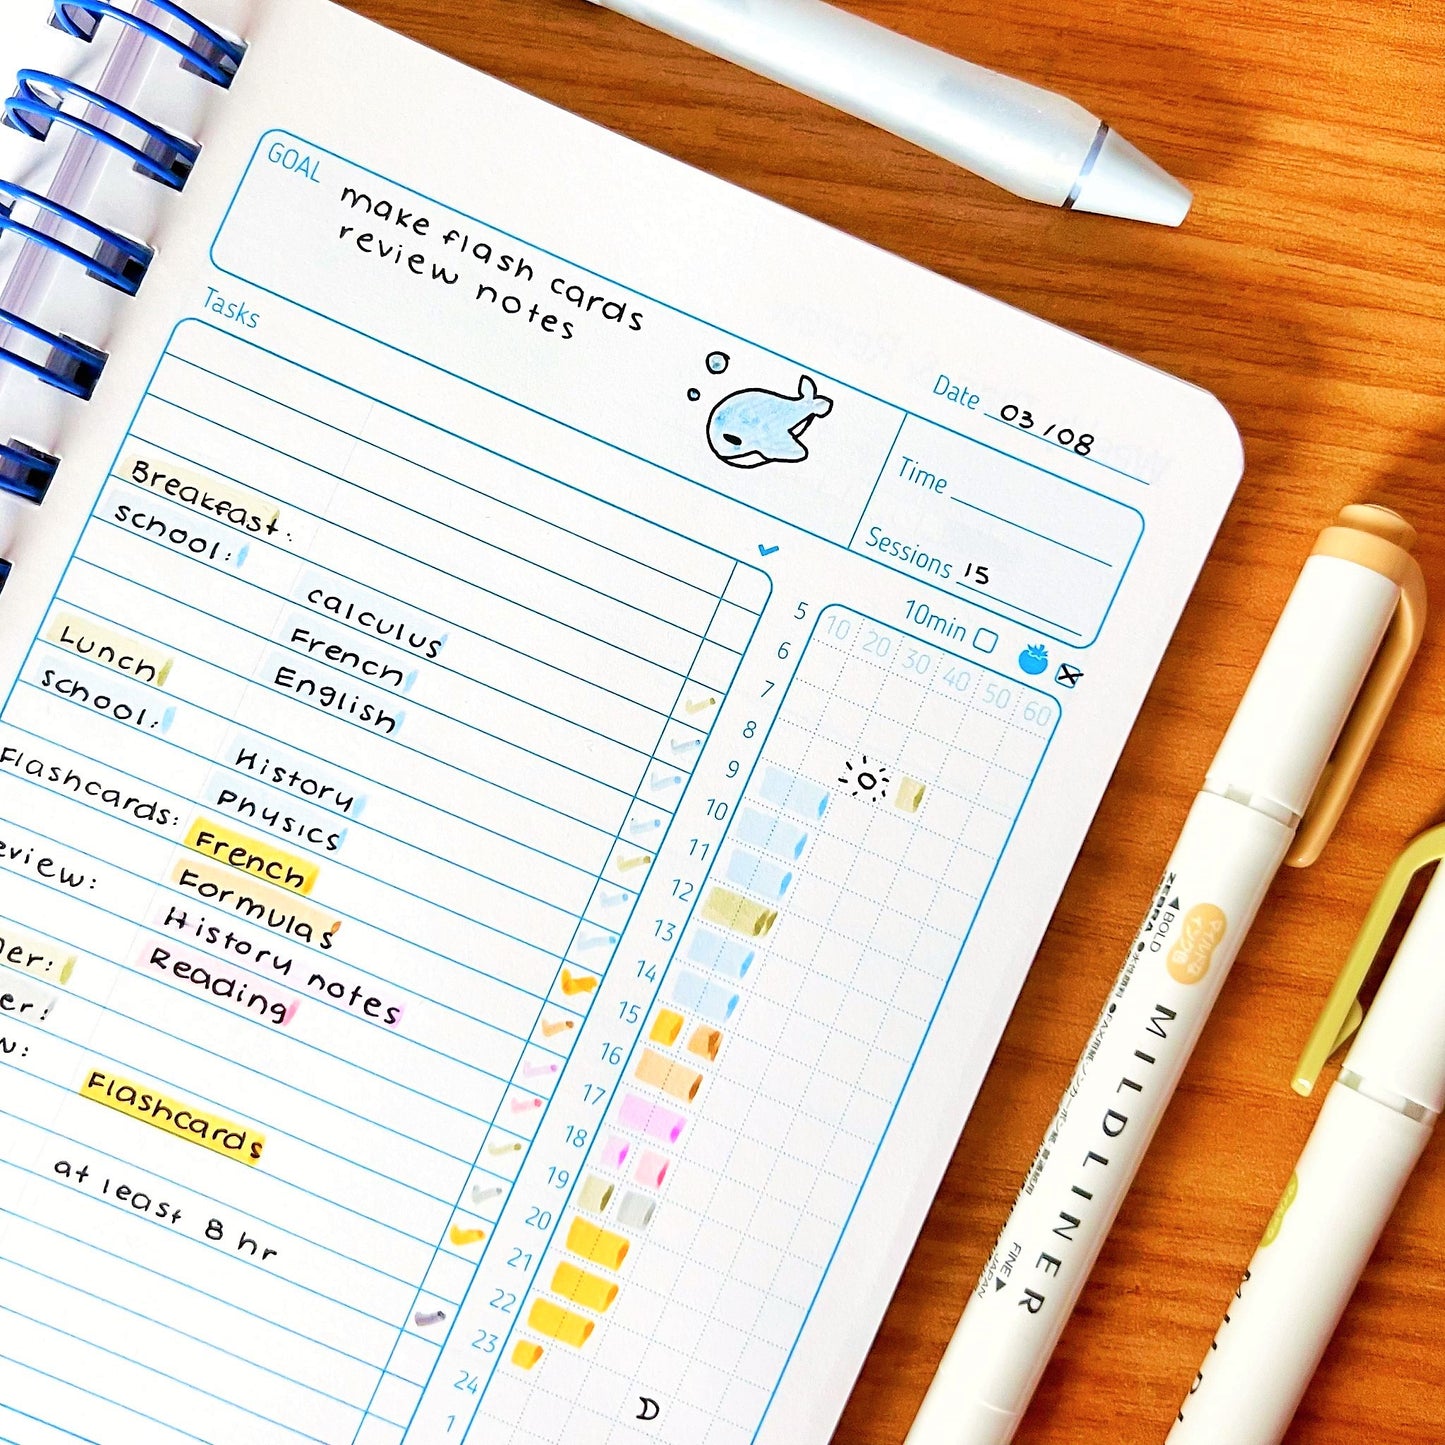 GOAL make flash cards
review notes
Date 03/08
Time
Sessions 15
Tasks
10min
10 20 30 40 50 60
Breakfast:
school: calculus
French
English
Lunch
school: History
Physics
Flashcards: French
Formulas
History notes
Reading
Flashcards
at least 8 hr
5
6
7
8
9
10
11
12
13
14
15
16
17
18
19
20
21
22
23
24
1
D
ZEBRA
BOLD
MILDLINER
FINE
JAPAN